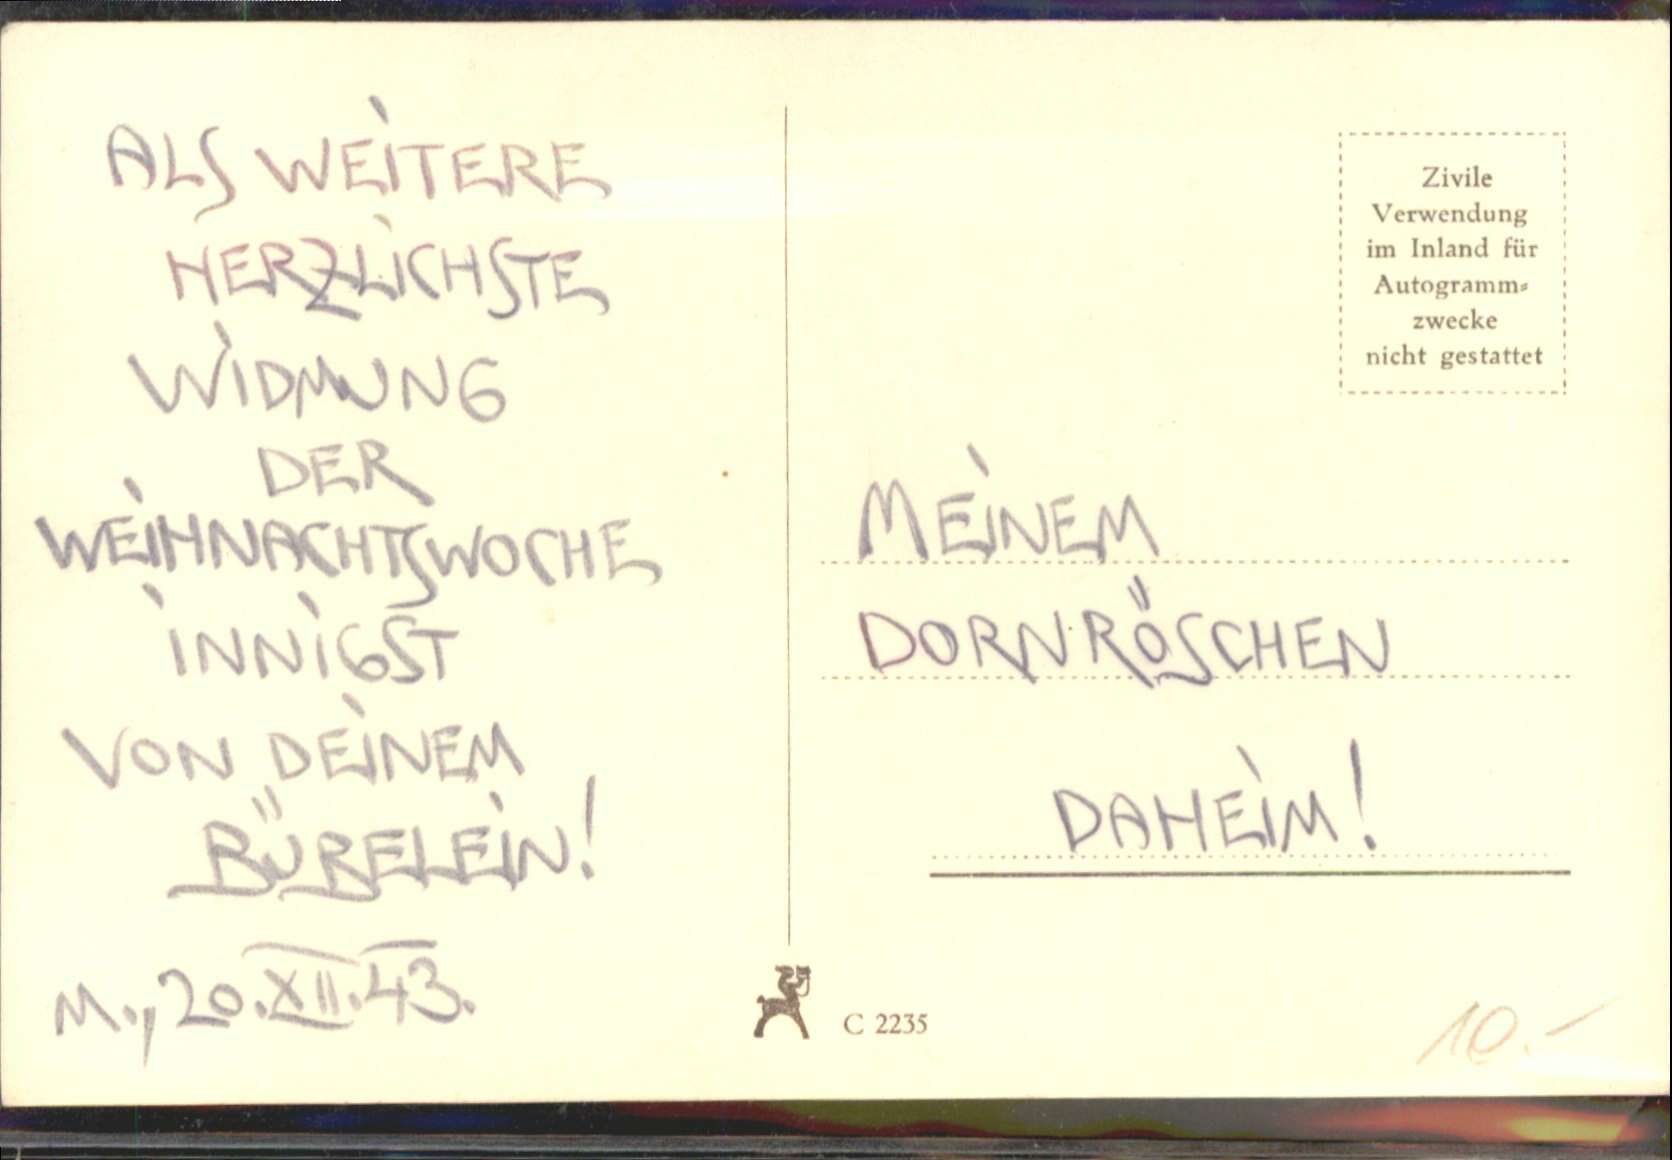 ALS WEITERE
HERZLICHSTE
WIDMUNG
DER
WEIHNACHTSWOCHE
INNIGST
VON DEINEM
BÜBELEIN!
M., 20.XII.43.
Zivile
Verwendung
im Inland für
Autogramm=
zwecke
nicht gestattet
MEINEM
DORNRÖSCHEN
DAHEIM!
C 2235
10.-